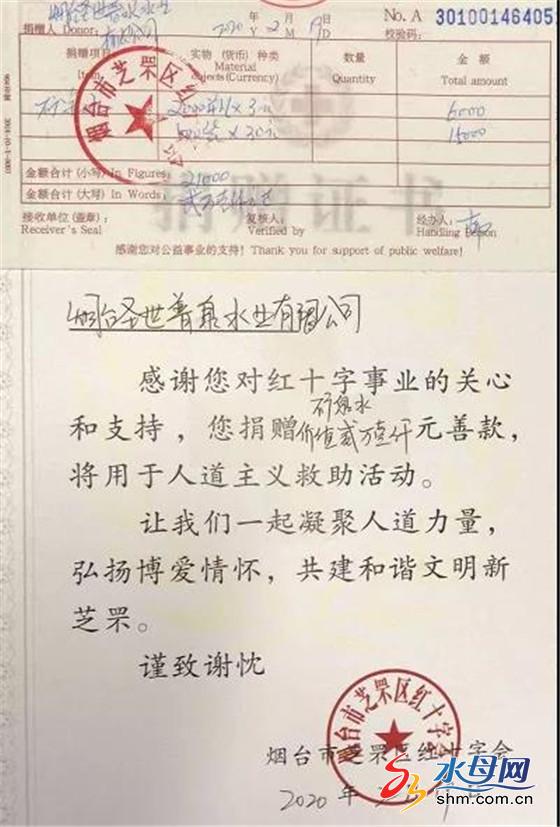 捐赠人 Donor: 烟台圣世普泉水业有限公司 2020 年Y 2 月M 19 日D No. A 30100146405
校验码:
捐赠项目 Item 实物 (货币) 种类 Material objects(Currency) 数量 Quantity 金额 Total amount
x 3 6000
x 30 15000
金额合计 (小写) In Figures: 21000
金额合计 (大写) In Words:
捐赠证书
接收单位(盖章): Receiver's Seal 复核人: Verified by 经办人: Handling Person
感谢您对公益事业的支持! Thank you for support of public welfare!
烟台市芝罘区红十字会
烟台圣世普泉水业有限公司
感谢您对红十字事业的关心
矿泉水
和支持，您捐赠价值贰万壹仟元善款，
将用于人道主义救助活动。
让我们一起凝聚人道力量，
弘扬博爱情怀，共建和谐文明新
芝罘。
谨致谢忱
烟台市芝罘区红十字会
烟台市芝罘区红十字会
2020 年
水母网
shm.com.cn